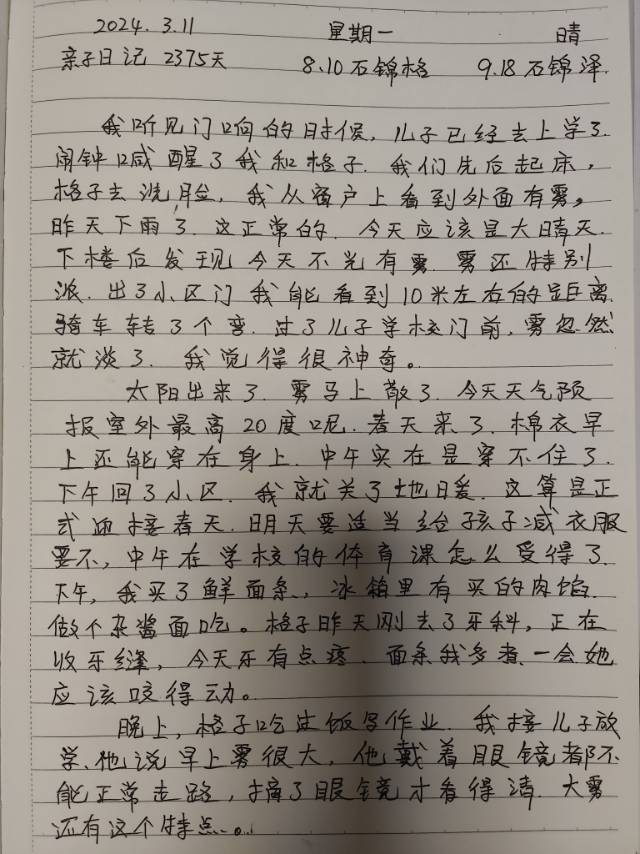 2024.3.11 星期一 晴
亲子日记 2375天 8.10石锦格 9.18石锦泽
我听见门响的时候,儿子已经去上学了.
闹钟喊醒了我和格子.我们先后起床,
格子去洗脸,我从窗户上看到外面有雾,
昨天下雨了.这正常的.今天应该是大晴天.
下楼后发现今天不光有雾.雾还特别
浓.出了小区门我能看到10米左右的距离.
骑车转了个弯.过了儿子学校门前,雾忽然
就淡了.我觉得很神奇。
太阳出来了.雾马上散了.今天天气预
报室外最高20度呢.春天来了.棉衣早
上还能穿在身上.中午实在是穿不住了.
下午回了小区.我就关了地暖.这算是正
式迎接春天.明天要适当给孩子减衣服
要不,中午在学校的体育课怎么受得了.
下午,我买了鲜面条,冰箱里有买的肉馅.
做个杂酱面吃。格子昨天刚去了牙科,正在
收牙缝,今天牙有点疼.面条我多煮一会她
应该咬得动。
晚上,格子吃过饭写作业.我接儿子放
学.他说早上雾很大,他戴着眼镜都不
能正常走路,摘了眼镜才看得清.大雾
还有这个特点..。